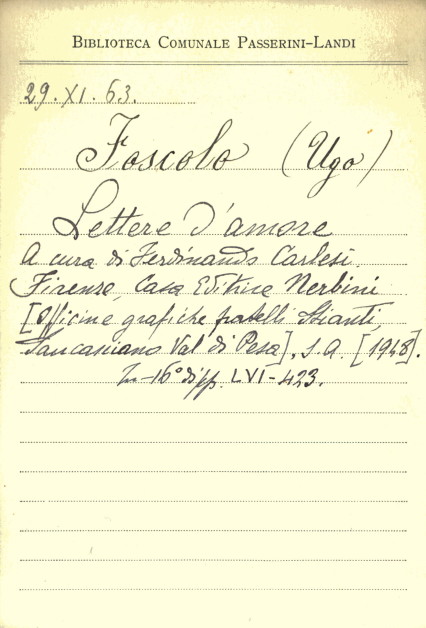 BIBLIOTECA COMUNALE PASSERINI-LANDI
29.XI.63.
Foscolo (Ugo)
Lettere d'amore
A cura di Ferdinando Carlesi
Firenze, Casa Editrice Nerbini
[Officine grafiche fratelli Stianti,
Sancasciano Val di Pesa], s.a. [1948].
In-16° di pp. LVI-423.